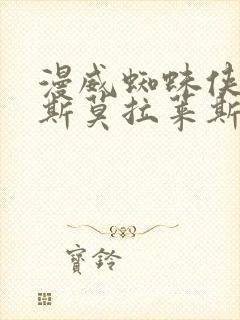 漫威蜘蛛侠
斯莫拉莱斯
寶鈴